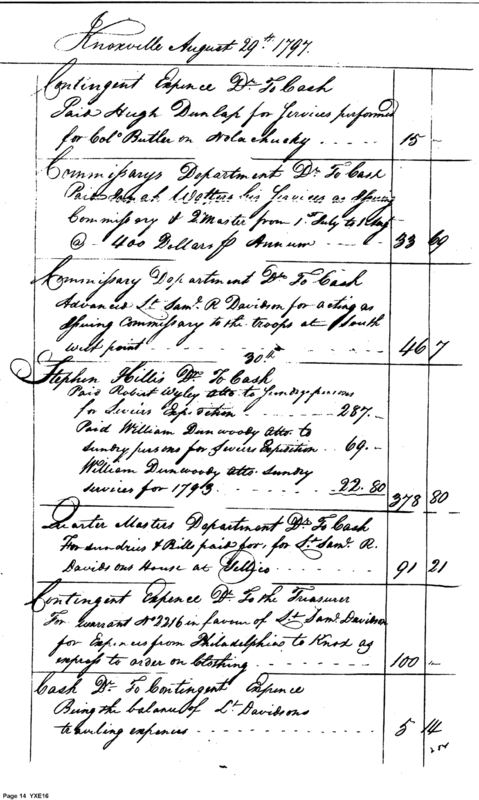 Knoxville August 29th. 1797.
Contingent Expence Dr. To Cash
Paid Hugh Dunlap for Services performed
for Colo. Butler on Nolachucky - - - - 15 -
Commissarys Department Dr To Cash
Paid his Services as Issuing
Commissary & Qr Master from 1st July to 1
@ 400 Dollars P Annum - - - - 33 69
Commissary Department Dr To Cash
Advanced Lt. Saml. R Davidson for acting as
Issuing Commissary to the troops at South
west point - - - - 46 7
30th
Stephen Hillis Dr. To Cash
Paid Robert Wyley atto. to Sundry persons
for Seviers Expedition - - - - 287. -
Paid William Dunwoody atto. to
sundry persons for Seviers Expedition . . 69. -
William Dunwoody atto. sundry
services for 1793 - - - - 22. 80 378 80
Quarter Masters Department Dr. To Cash
For sundries & Bills paid for, for Lt. Saml. R.
Davidsons House at Tellico - - - - 91 21
Contingent Expence Dr. To the Treasurer
For warrant No 2216 in favour of Lt. Saml. Davidson
for Expences from Philadelphia to Knox as
express to order on Clothing - - - - 100 -
Cash Dr. To Contingent Expence
Being the balance of Lt. Davidsons
traviling expences - - - - 5 14
Page 14 YXE16